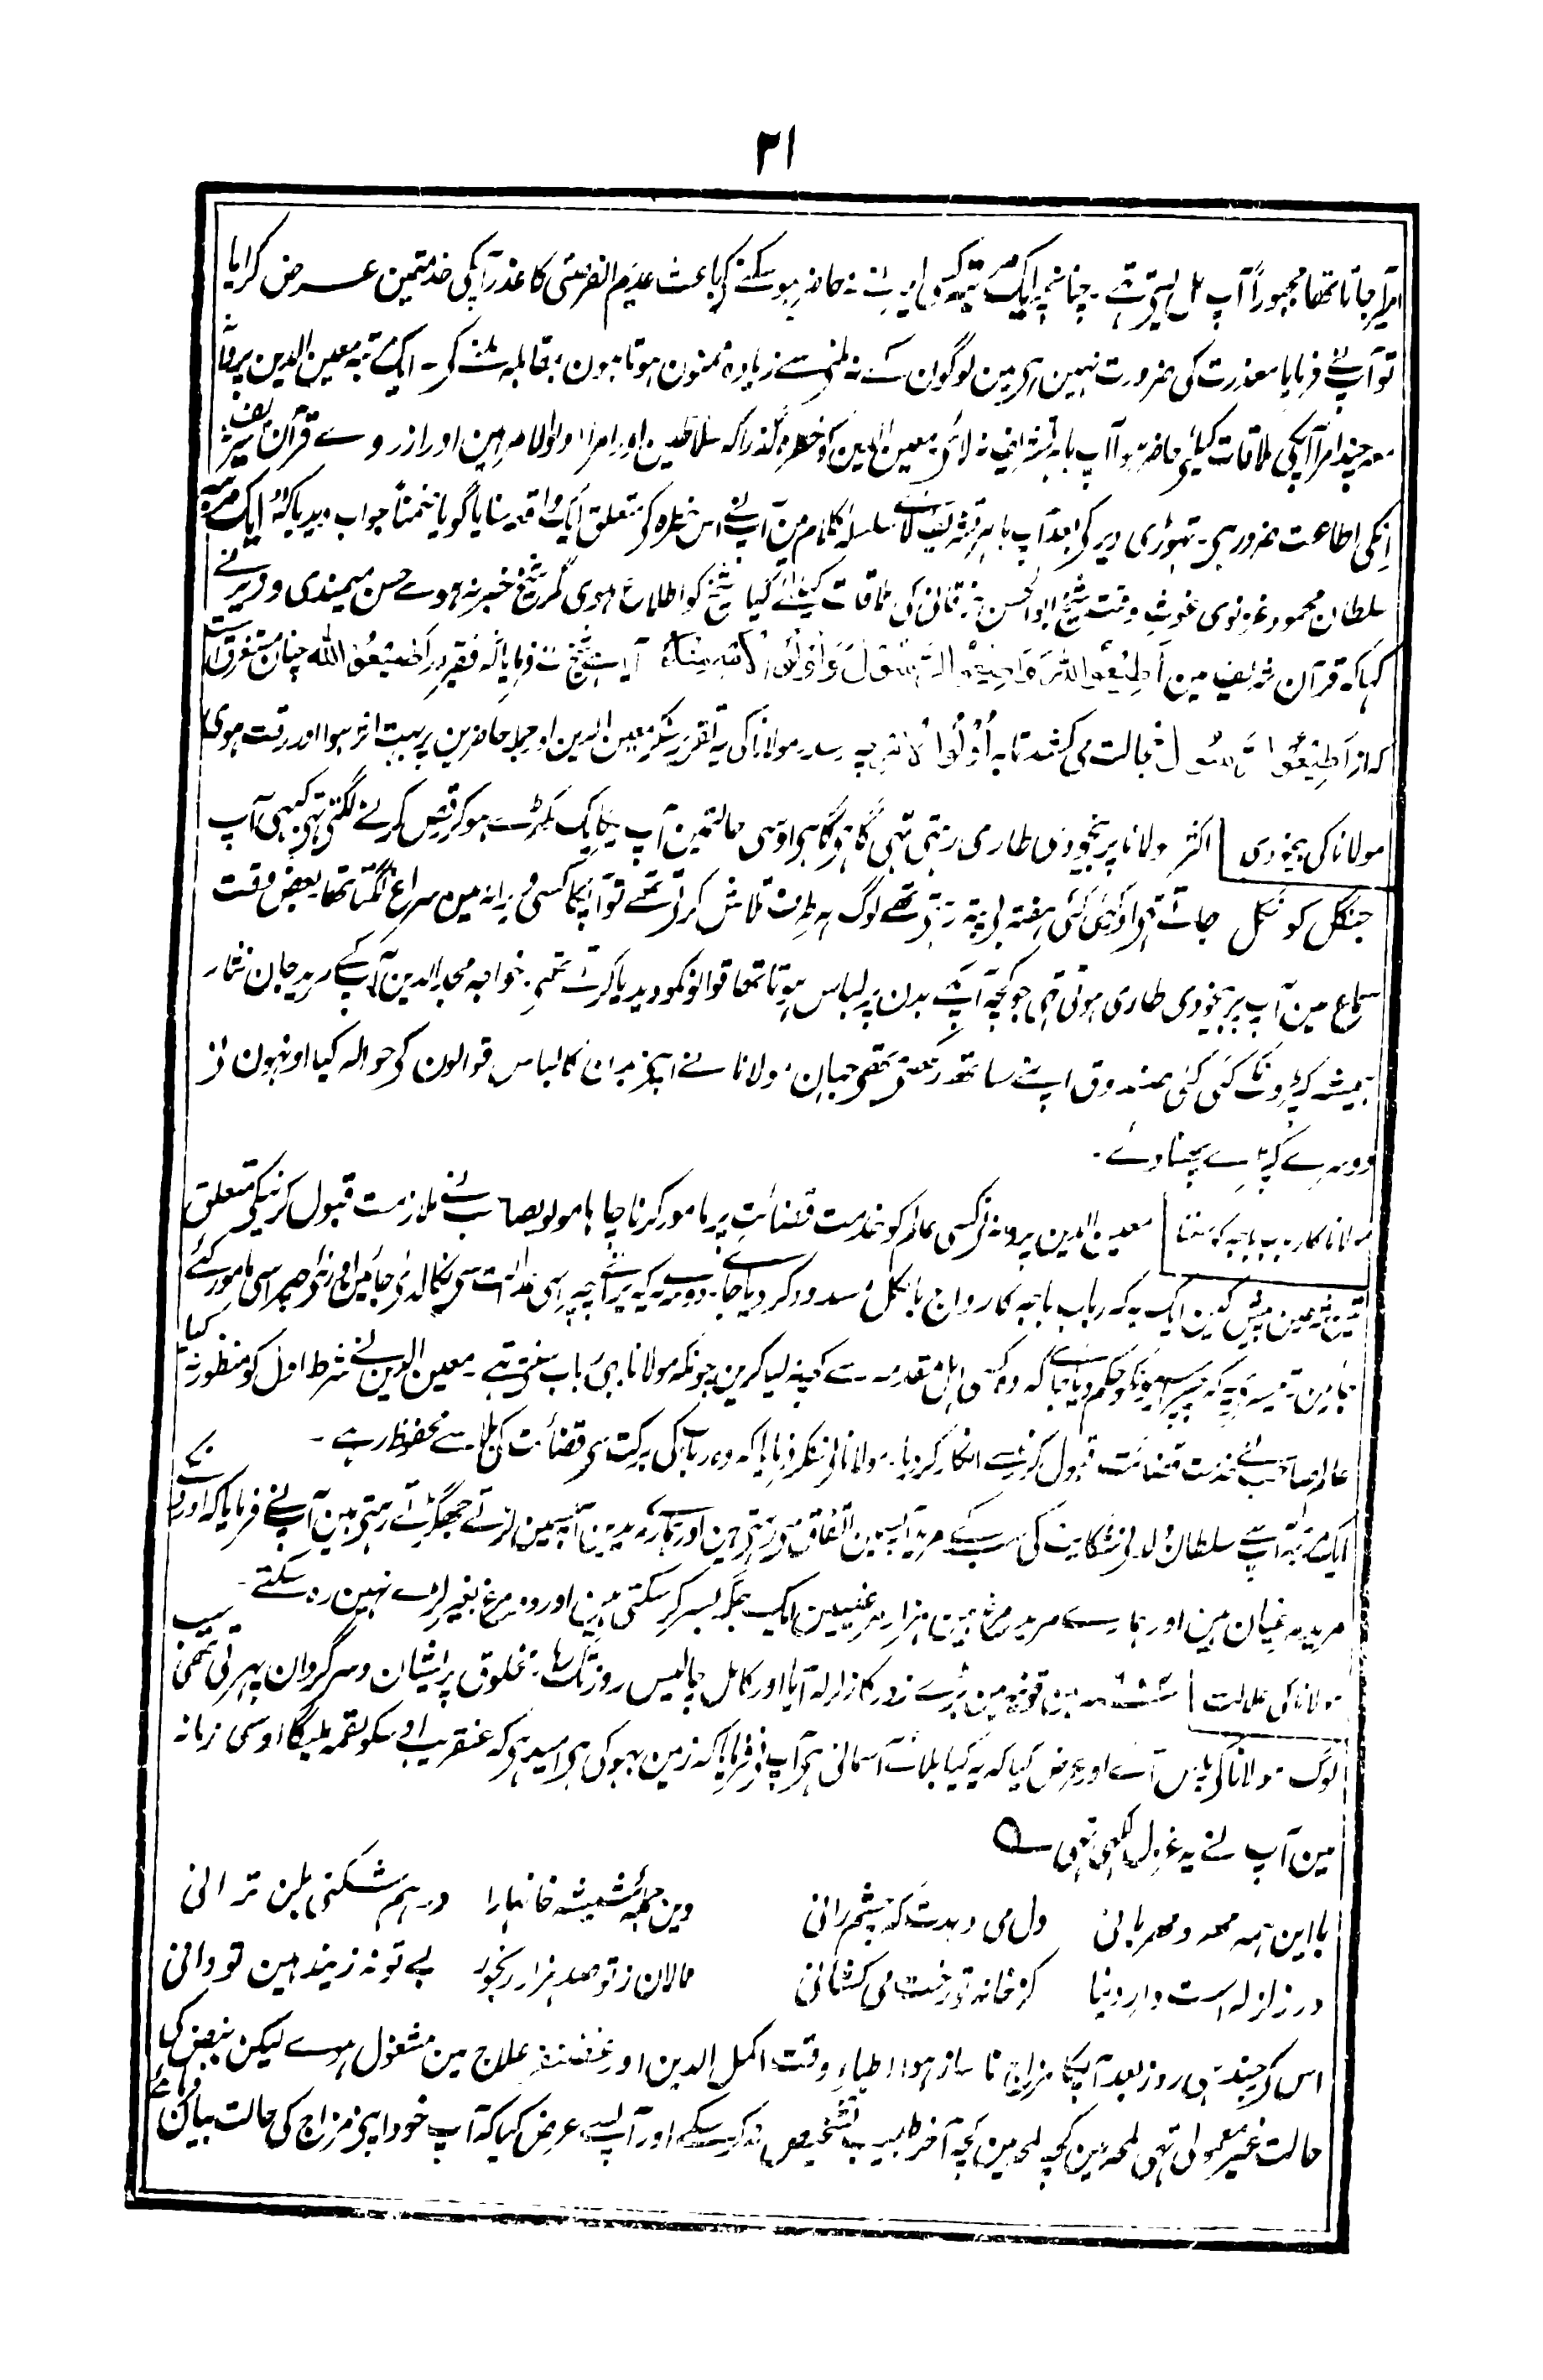 ۲۱
امیر آجاتا تھا مجبوراً آپ مل لیتے تھے ۔ چنانچہ ایک مرتبہ کسی امیر نے نہ حاضر ہوسکنے کے باعث عدیم الفرصتی کا عذر آپکی خدمتمین عرض کرایا
تو آپ نے فرمایا معذرت کی ضرورت نہین ہی مین لوگون کے نہ ملنے سے زیادہ ممنون ہوتا ہون بمقابلہ ملنے کے ۔ ایک مرتبہ معین الدین پروانہ
معہ چند امرا آپکی ملاقات کیلئے حاضر ہوا آپ باہر تشریف نہ لائے معین الدین کو خطرہ گذرا کہ سلاطین اور امرا اولوالامر ہین اور ازروے قرآن شریف
انکی اطاعت ضرور ہی ۔ تہوڑی دیر کے بعد آپ باہر تشریف لائے سلسلہ کلام مین آپ نے اس خطرہ کے متعلق ایک واقعہ سنایا گویا ضمناً جواب دیدیا کہ ایک مرتبہ
سلطان محمود غزنوی غوث وقت شیخ ابوالحسن خرقانی کی ملاقات کیلئے گیا شیخ کو اطلاع ہوی مگر شیخ خبر نہ ہوے حسن میمندی وزیر نے
کہا کہ قرآن شریف مین اَطِیْعُوا اللّٰہَ وَاَطِیْعُوا الرَّسُوْلَ وَاُولِی الْاَمْرِ مِنْکُمْ آیا ہے شیخ نے فرمایا کہ فقیر در اَطِیْعُوا اللّٰہ چنان مستغرق است
کہ از اَطِیْعُوا الرَّسُوْل خجالت می کشد تا بہ اُولُوا الْاَمْرِ چہ رسد مولانا کی یہ تقریر سنکر معین الدین اور جملہ حاضرین پر بہت اثر ہوا اور رقت ہوی
مولانا کی بیخودی اکثر مولانا پر بیخودی طاری رہتی تہی گاہے گاہے اوسی حالتمین آپ یکایک کھڑے ہوکر رقص کرنے لگتے تہے کبہی آپ
جنگل کو نکل جاتے تہے اور کئی کئی ہفتہ لاپتہ رہتے تھے لوگ ہر طرف تلاش کرتے تھے تو آپکا کسی ویرانہ مین سراغ لگتا تھا بعض وقت
سماع مین آپ پر بیخودی طاری ہوتی تہی جو کچہ آپکے بدن پر لباس ہوتا تھا قوالونکو دیدیا کرتے تھے ۔ خواجہ مجد الدین آپ کے مرید جان نثار
ہمیشہ کپڑونکے کئی کئی صندوق اپنے ساتھ رکھتے تھے جہان مولانا نے اپنے بدن کا لباس قوالون کے حوالہ کیا اونہون نے
دوسرے کپڑے پہنا دئے ۔
مولانا کا رباب باجہ کو سننا معین الدین پروانہ نے کسی عالم کو خدمت قضائت پر مامور کرنا چاہا مولویصاحب نے ملازمت قبول کرنیکے متعلق
تین شرطین پیش کین ایک یہ کہ رباب باجہ کا رواج بالکل مسدود کردیا جائے ۔ دوسرے یہ کہ پرانے چپراسی عدالت سے نکالدئے جائین اور نئے چپراسی مامور کئے
جائین ۔ تیسرے یہ کہ چپراسیونکو حکم دیا جائے کہ وہ کسی اہل مقدمہ سے کچہ نہ لیا کرین چونکہ مولانا بہی رباب سنتے تہے ۔ معین الدین نے شرط اول کو منظور نہ کیا
عالم صاحب نے خدمت قضائت قبول کرنیسے انکار کردیا ۔ مولانا نے سنکر فرمایا کہ وہ رباب کی برکت سے قضائت کی بلا سے محفوظ رہے ۔
ایک مرتبہ آپ سے سلطان ولد نے شکایت کی سب کے مرید آپسمین اتفاق سے رہتے ہین اور ہمارے مریدین آپسمین لڑتے جھگڑتے رہتے ہین آپ نے فرمایا کہ اورون کے
مرید مرغیان ہین اور ہمارے مرید مرغ ہین ہزار مرغیین ایک جگہ بسر کرسکتی ہین اور دو مرغ بغیر لڑے نہین رہ سکتے ۔
مولانا کی علالت مین قونیہ مین بڑے زور کا زلزلہ آیا اور کامل چالیس روز تک رہا ۔ مخلوق پریشان و سرگردان پہرتی تھی سب
لوگ مولانا کے پاس آئے اور عرض کیا کہ یہ کیا بلائے آسمانی ہے آپ نے فرمایا کہ زمین بہوکی ہے امید ہے کہ عنقریب اوسکو لقمہ ملیگا اوسی زمانہ
مین آپ نے یہ غزل لکھی تھی ؎
با این ہمہ مہر و مہربانی دل می دہدت کہ خشم رانی وین جملہ شیشہ خانہا را درہم شکنی بلن ترانی
در زلزلہ است دار دنیا کز خانہ تو رخت می کشانی نالان ز تو صد ہزار رنجور بے تو نہ زیند ہین تو دانی
اس کے چند ہی روز بعد آپکا مزاج ناساز ہوا اطباء وقت اکمل الدین اور غضنفر علاج مین مشغول ہوے لیکن نبض کی
حالت غیر معمولی تہی لمحہ مین کچہ لمحہ مین کچہ آخر طبیب تشخیص نہ کرسکے اور آپ سے عرض کیا کہ آپ خود اپنے مزاج کی حالت بیان فرمائے